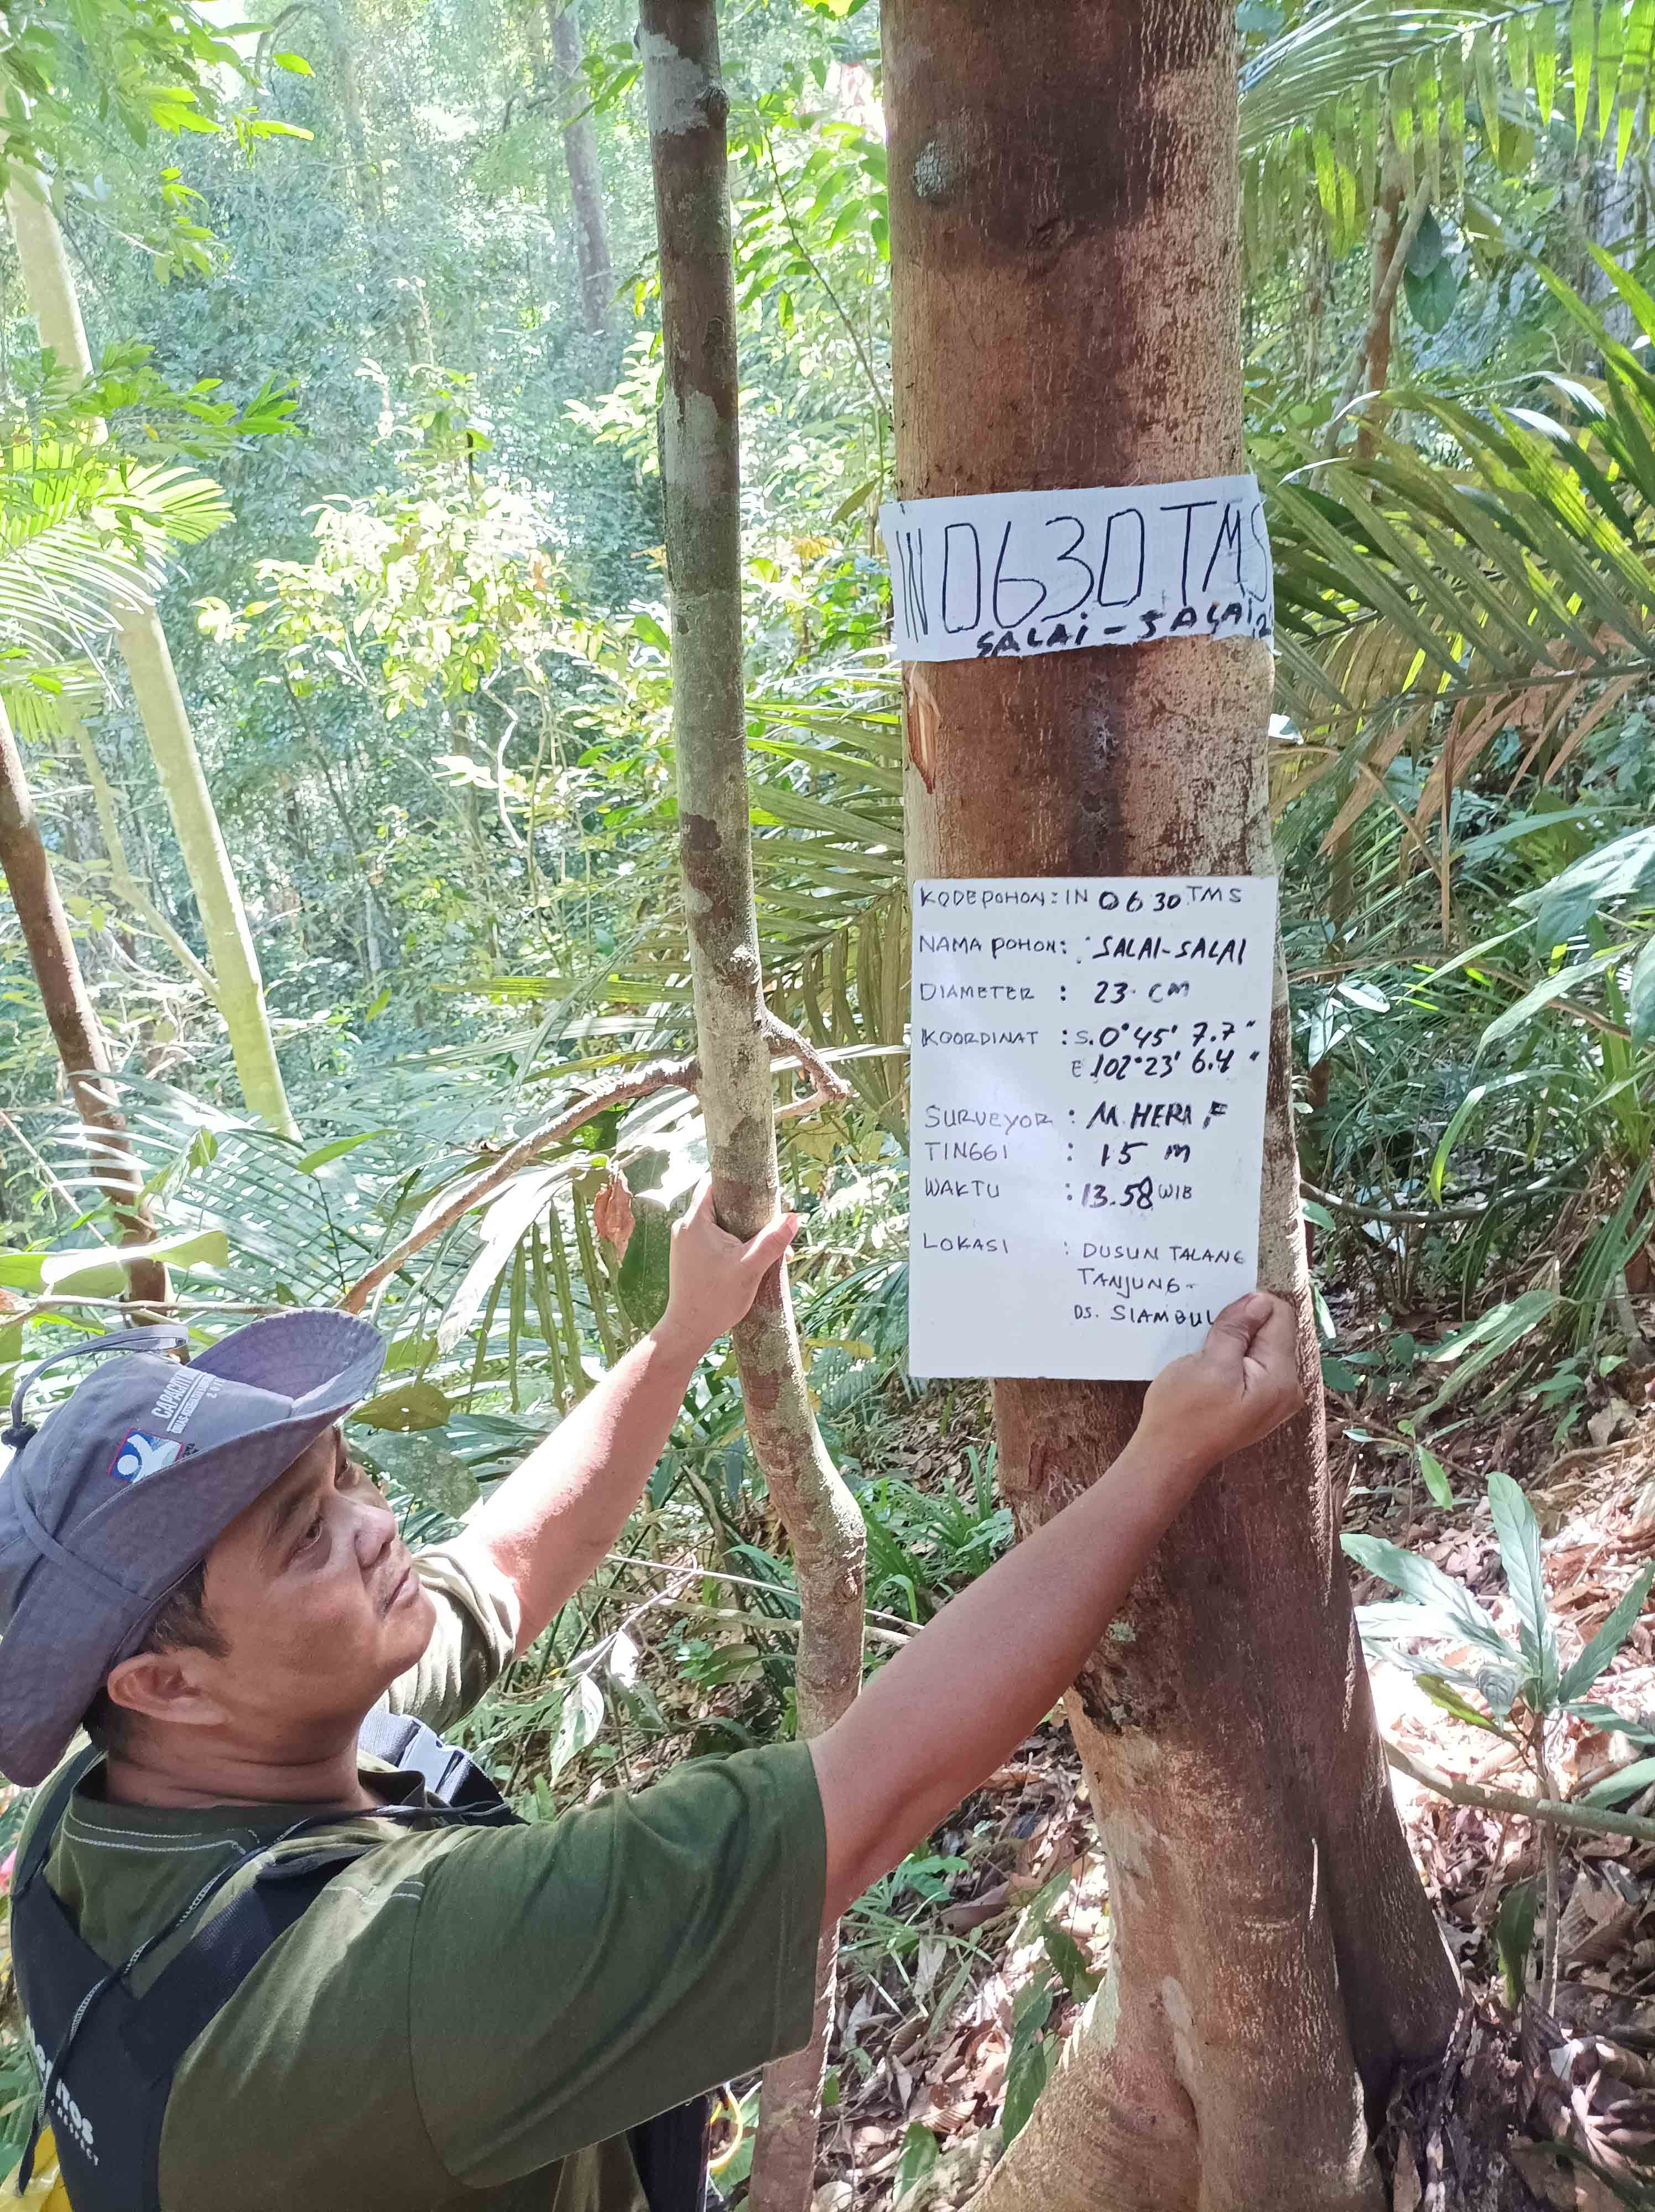 IN0630TMS
SALAi-SALAi2
KODEPOHON: IN 0630 TMS
NAMA POHON: SALAI-SALAI
DIAMETER : 23 CM
KOORDINAT : S.0°45' 7.7"
E 102°23' 6.4"
SURVEYOR : M.HERA F
TINGGI : 15 m
WAKTU : 13.58 WIB
LOKASI : DUSUN TALANG
TANJUNG-
DS. SIAMBUL
CAPACIT